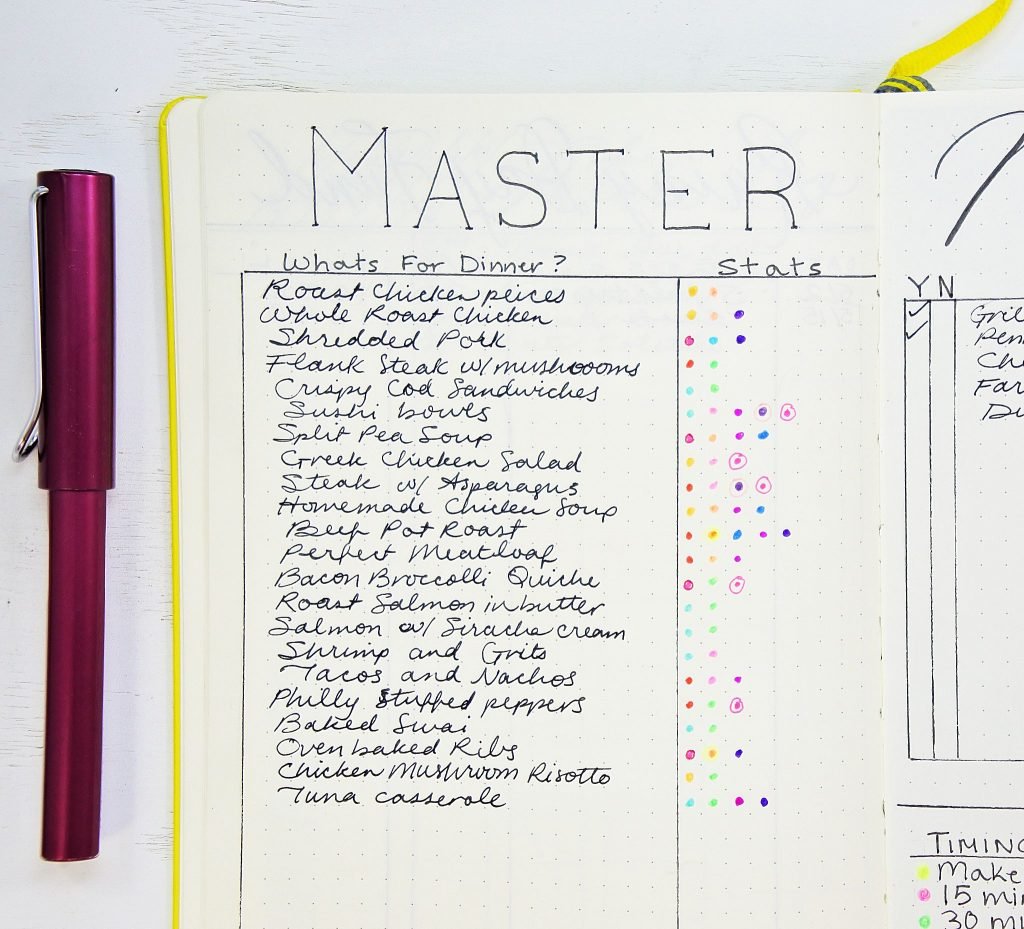 MASTER
Whats For Dinner?
Stats
Roast Chicken peices
Whole Roast Chicken
Shredded Pork
Flank Steak w/ mushoooms
Crispy Cod Sandwiches
Sushi bowls
Split Pea Soup
Greek Chicken Salad
Steak w/ Asparagus
Homemade Chicken Soup
Beef Pot Roast
Perfect Meatloaf
Bacon Broccolli Quiche
Roast Salmon in butter
Salmon w/ Siracha cream
Shrimp and Grits
Tacos and Nachos
Philly Stuffed peppers
Baked Swai
Oven baked Ribs
Chicken Mushroom Risotto
Tuna casserole
Y N
TIMING
Make
15 min
30